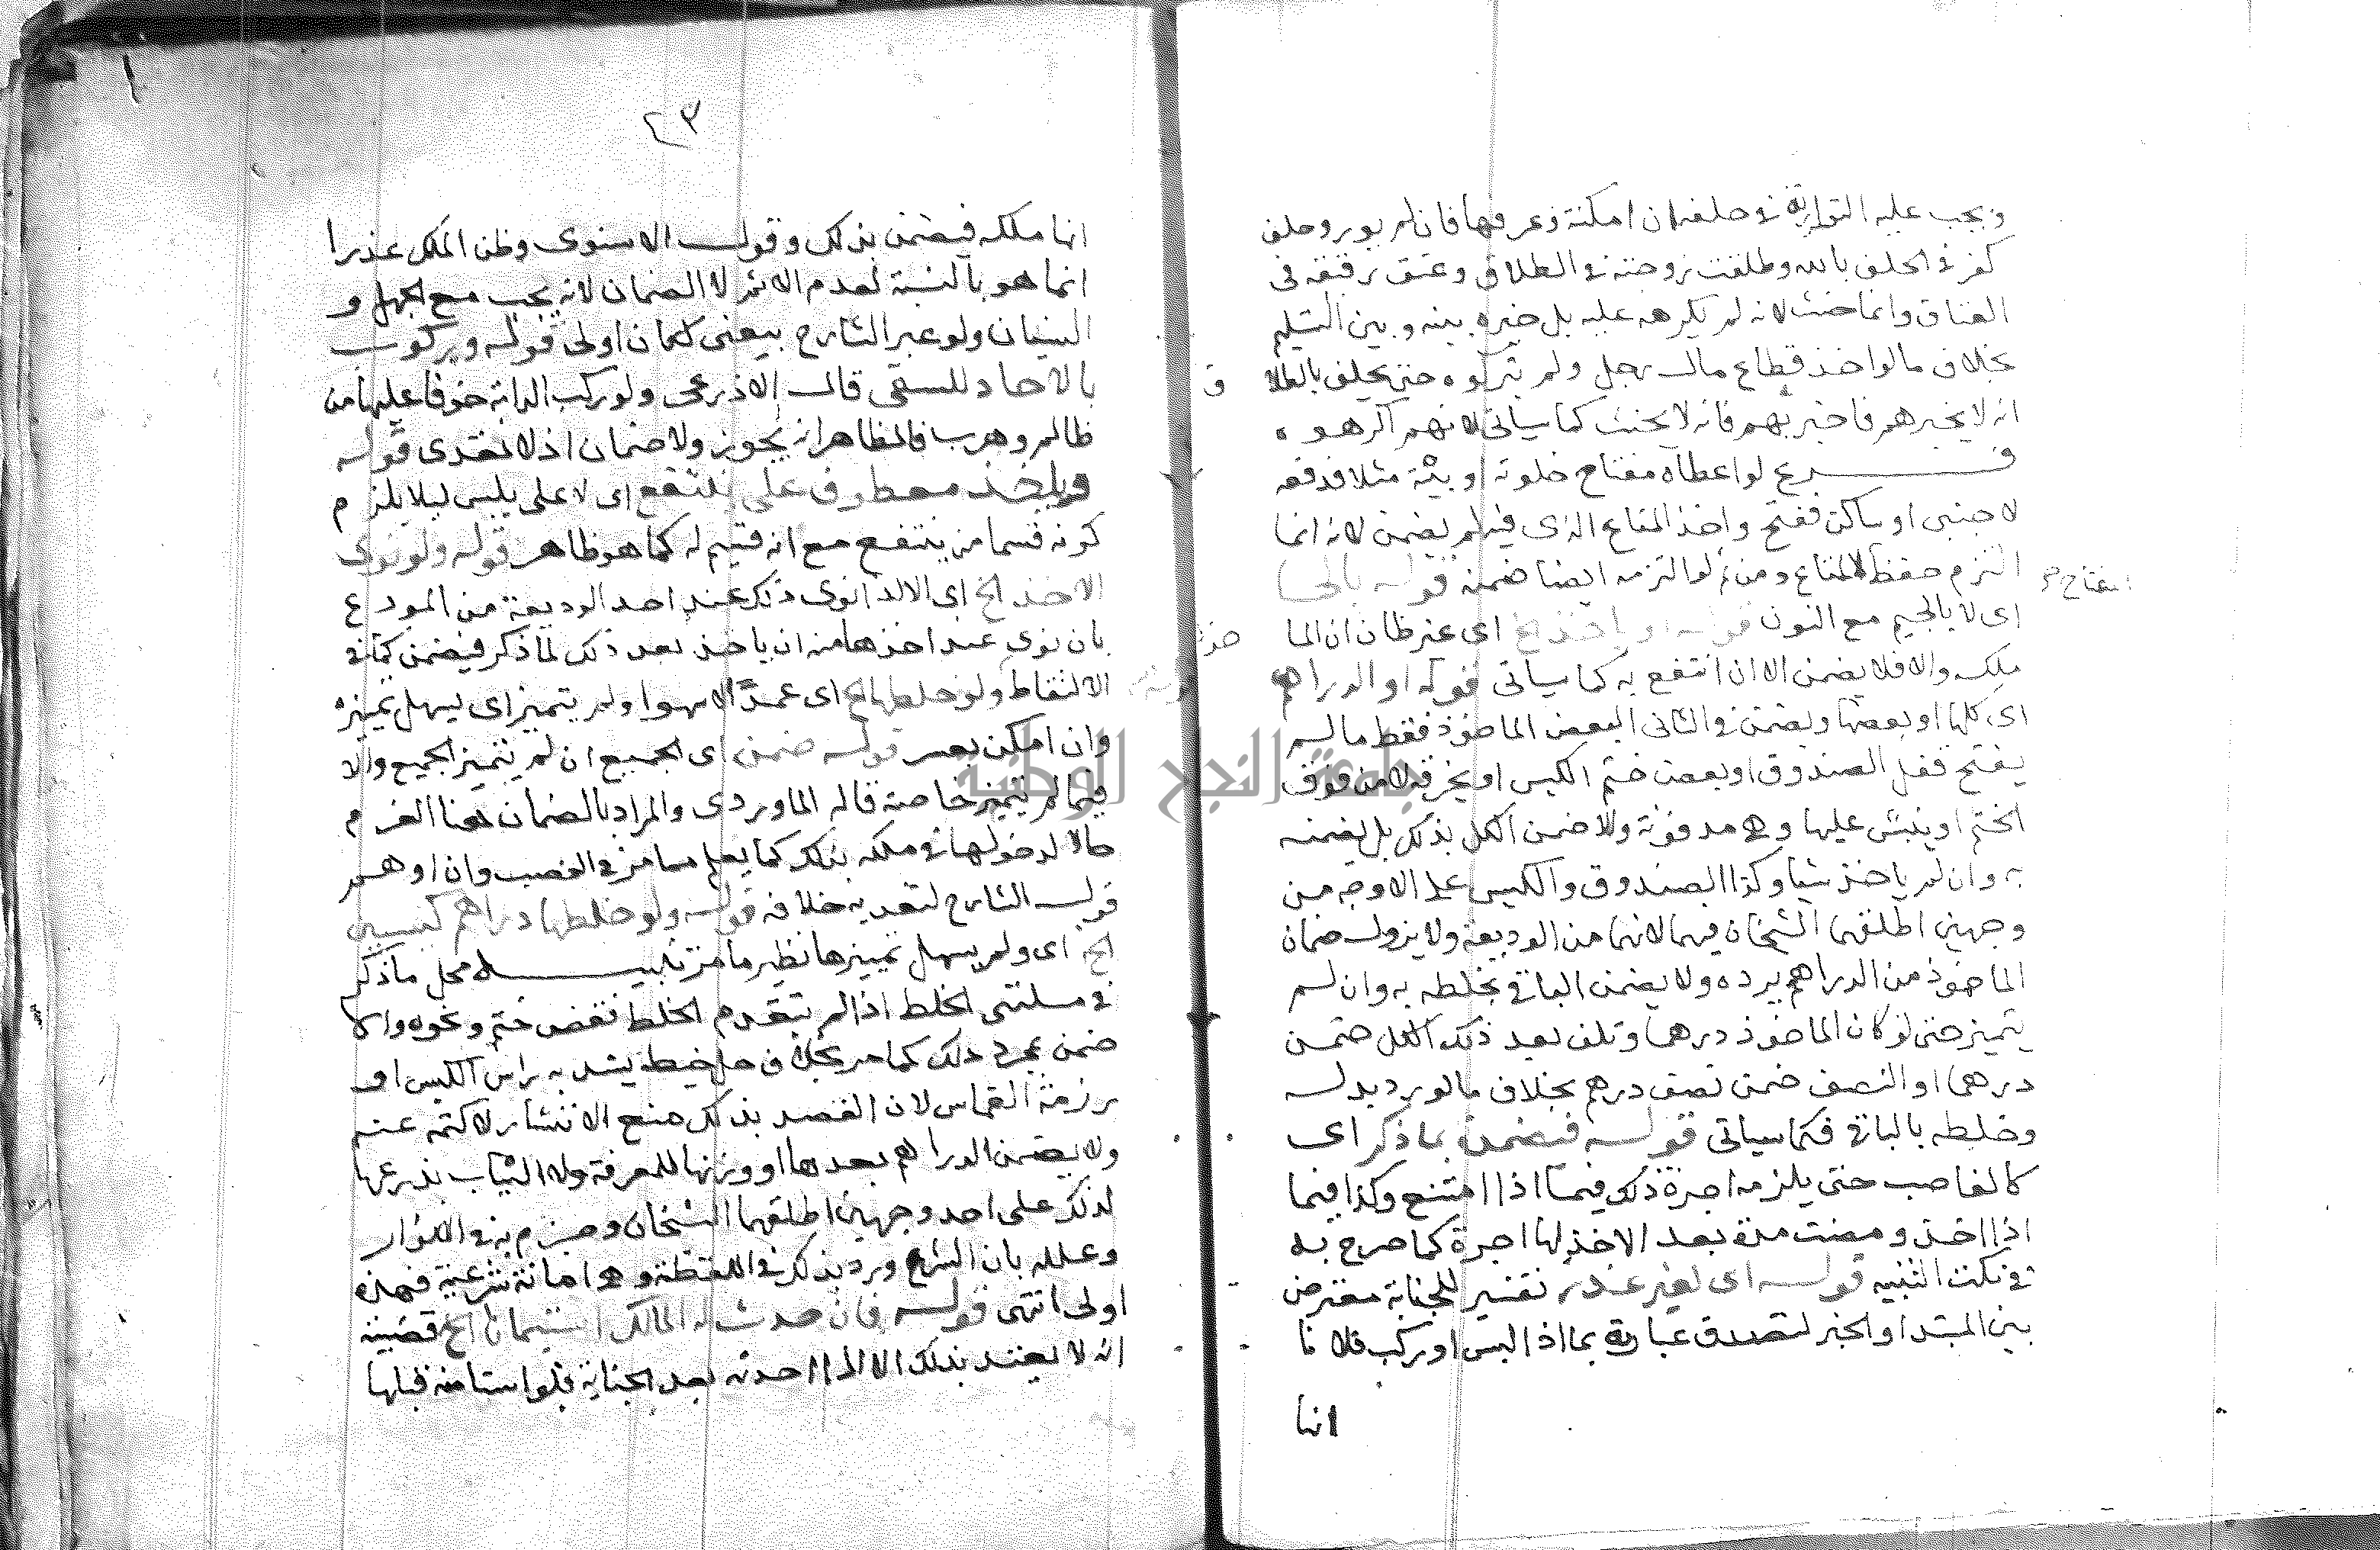 ويجب عليه التورية في حلفه ان امكنة وعرفها فان لم يور وحلف
كفر في الحلف بالله وطلقت زوجته في الطلاق وعتق رقيقه في
العتاق وانما حنث لانه لم يكرهه عليه بل خيره بينه وبين التسليم
بخلاف ما لو اخذ قطاع مال رجل ولم يتركوه حتى يحلف بالطلا ق
انه لا يخبرهم فاخبر بهم فانه لا يحنث كما سياتي لانهم اكرهوه
فرع لو اعطاه مفتاح خلوته او بيته مثلا فدفعه
لاجنبي او ساكن ففتح واخذ المتاع الذي فيه لم يضمن لانه انما
التزم حفظ لا المتاع ومن ثم لو التزمه ايضا ضمنه قوله بالخا
المفتاح صح
اي لا بالجيم مع النون قوله او ياخذ الخ اي غير ظان ان الما خوذ
ملكه والا فلا يضمن الا ان انتفع به كما سياتي قوله او الدراهم
اي كلها او بعضها ويضمن في الثاني البعض الماخوذ فقط ما لم
يفتح قفل الصندوق او بعض ختم الكيس او يخرقه لا من فوق
الختم او ينبش عليها وهي مدفونة والا ضمن الكل بذلك بل يضمنه
به وان لم ياخذ شيا وكذا الصندوق والكيس على الاوجه من
وجهين اطلقهما الشيخان فيهما لانهما من الوديعة ولا يزول ضمان
الماخوذ من الدراهم برده ولا يضمن الباقي بخلطه به وان لم
يتميز حتى لو كان الماخوذ درهما وتلف بعد ذلك الكل ضمن
درهما او النصف ضمن نصف درهم بخلاف ما لو رد بدله
وخلطه بالباقي فكما سياتي قوله فيضمن بما ذكر اي
كالغاصب حتى يلزمه اجرة ذلك فيما اذا امتنع وكذا فيما
اذا اخذ ومضت مدة بعد الاخذ لها اجرة كما صرح به
في نكت التنبيه قوله اي لغير عذر تفسير للجناية معترض
بين المبتدا والخبر لتصدق عبارته بما اذا لبس او ركب فلانا
انها
٢٣
انها ملكه فيضمن بذلك وقول الاسنوي وظن الملك عذرا
انما هو بالنسبة لعدم الاثم لا الضمان لانه يجب مع الجهل و
النسيان ولو عبر الشارح بيعني لكان اولى قوله وركوب
بالاحاد للسقي قال الاذرعي ولو ركب الدابة خوفا عليها من
ظالم وهرب فالظاهر انه يجوز ولا ضمان اذ لا تعدى قوله
وياخذ معطوف على ينتفع اي لا على يلبس ليلا يلزم
كونه قسما من ينتفع مع انه قسيم له كما هو ظاهر قوله ولو نوى
الاخذ الخ اي الا اذا نوى ذلك عند اخذ الوديعة من المودع
بان نوى عند اخذها منه ان ياخذ بعد ذلك لما ذكر فيضمن كما في
الالتقاط ولو خلطها الخ اي عمدا لا سهوا ولم يتميز اي يسهل تميزه
وان امكن بعسر قوله ضمن اي الجميع ان لم يتميز الجميع والا
فيما لم يتميز خاصة قاله الماوردي والمراد بالضمان هنا الغرم
حالا لدخولها في ملكه بذلك كما يعلم مما مر في الغصب وان اوهم
قول الشارح لتعديه خلافه قوله ولو خلطها دراهم كيسين
الخ اي ولم يسهل تمييزها نظير ما مر تنبيه محل ما ذكر
في مسئلتي الخلط اذا لم يتقدم الخلط نقض ختم ونحوه والا
ضمن بمجرد ذلك كما مر بخلاف حل خيط يشد به راس الكيس او
رزمة القماش لان القصد بذلك منع الانتشار لا كتمه عنه
ولا يضمن الدراهم بعدها او وزنها للمعرفة ولا الثياب بذرعها
لذلك على احد وجهين اطلقهما الشيخان وجزم به في الانوار
وعلله بان الشرع ورد بذلك في اللقطة وهي امانة شرعية فهذه
اولى انتهى قوله فان حدث له المالك استيمانا الخ قضيته
انه لا يعتد بذلك الا اذا احدثه بعد الجناية فلو استامنه قبلها
جامعة النجاح الوطنية